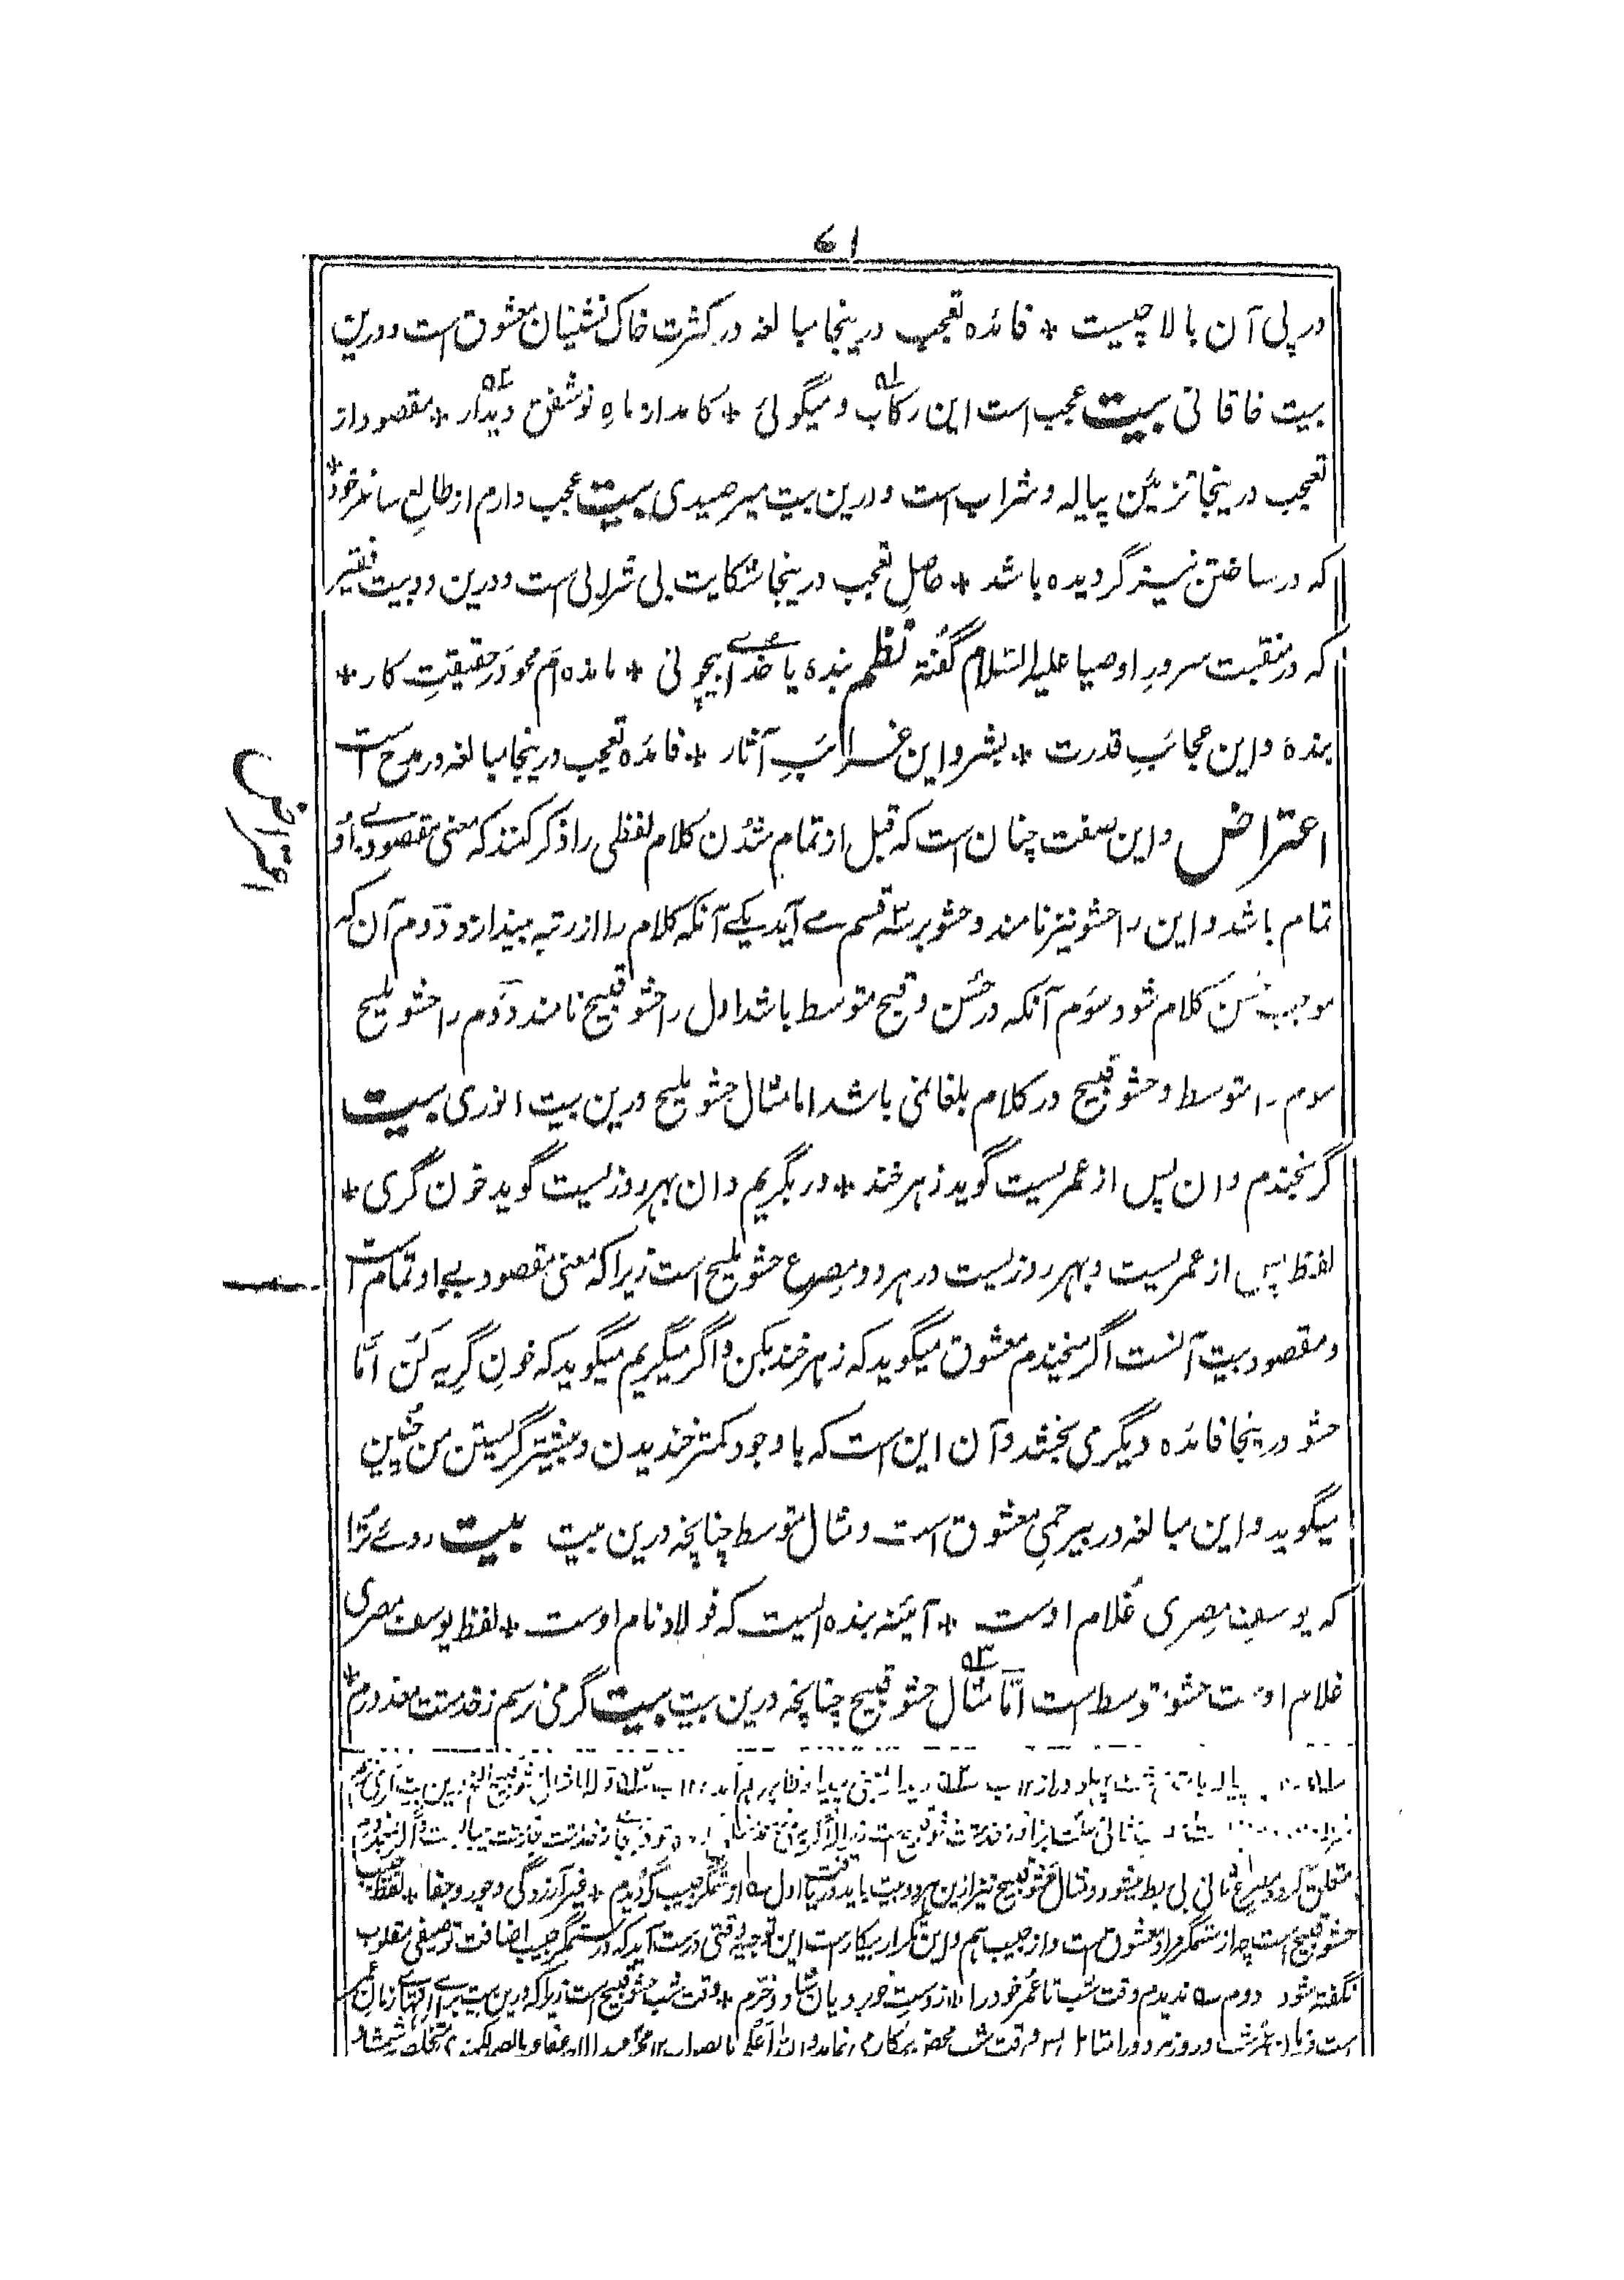 ۶۱
در پی آن بالا چیست * فائده تعجب درینجا مبالغه در کثرت خاک نشینان معشوق است و درین
بیت خاقانی بیت عجب است این رکاب و میگوئی * کامد از ماهِ نو شفق دیدار * مقصود از
تعجب درینجا تزئین پیاله و شراب است و درین بیت میر صیدی بیت عجب دارم از طالعِ ساغر خود *
که در ساختن نیز گردیده باشد * حاصلِ تعجب درینجا شکایت بی شرابی است و درین دو بیت فقیر
که در منقبت سرورِ اوصیا علیه السّلام گفته نظم بنده یا خدائے بیچونی * مانده ام محو در حقیقتِ کار *
بنده و این عجائبِ قدرت * بشر و این غرائبِ آثار * فائده تعجب درینجا مبالغه در مدح است
اعتراض
اعتراض و این صفت چنان است که قبل از تمام شدن کلام لفظی را ذکر کنند که معنی مقصود بے او
تمام باشد و این را حشو نیز نامند و حشو بر سه قسم مے آید یکے آنکه کلام را از رتبه بیندازد دوم آن که
موجب حُسن کلام شود سوم آنکه در حُسن و قبح متوسط باشد اول را حشو قبیح نامند دوم را حشو ملیح
سوم را متوسط و حشو قبیح در کلام بلغا نمی باشد اما مثال حشو ملیح درین بیت انوری بیت
گر بخندم وان پس از عمریست گوید زهرخند * ور بگریم وان بهر روزیست گوید خون گری *
لفظ پس از عمریست و بهر روزیست در هر دو مصرع حشو ملیح است زیرا که معنی مقصود بے او تمام است
و مقصود بیت آنست اگر میخندم معشوق میگوید که زهرخند بکن و اگر میگریم میگوید که خون گریه کُن امّا
حشو درینجا فائده دیگر می بخشد و آن این است که با وجود کمتر خندیدن و بیشتر گریستن من چنین
میگوید و این مبالغه در بیرحمیِ معشوق است و مثال متوسط چنانچه درین بیت بیت روئے ترا
که یوسف مصری غلام اوست * آئینه بنده ایست که فولاد نام اوست * لفظ یوسف مصری
غلام اوست حشو متوسط است امّا مثال حشو قبیح چنانچه درین بیت بیت گر می نرسم ز خدمتت معذورم *
متعلق مصرع ثانی بی ربط میشود و مثال حشو قبیح نیز ازین هر دو بیت باید دریافت اول او ستمگر حبیب گردیدم * غیر آزردگی و جور و جفا * لفظ حبیب
حشو قبیح است چه از ستمگر مراد معشوق است و از حبیب هم و این تکرار بیکار است این توجیه وقتی درست آید که در ستمگر حبیب اضافت توصیفی مقلوب
نگفته شود دوم ندیدم وقت شب تا عمر خود را * ز وصلِ خوبرویان شاد و خرّم * وقت شب حشو قبیح است زیرا که درین بیت